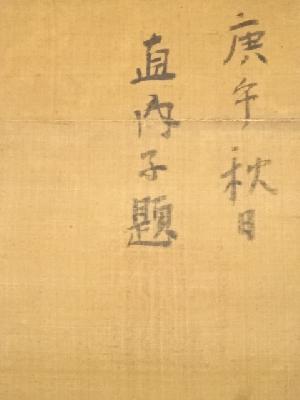 庚午秋日
直内子題